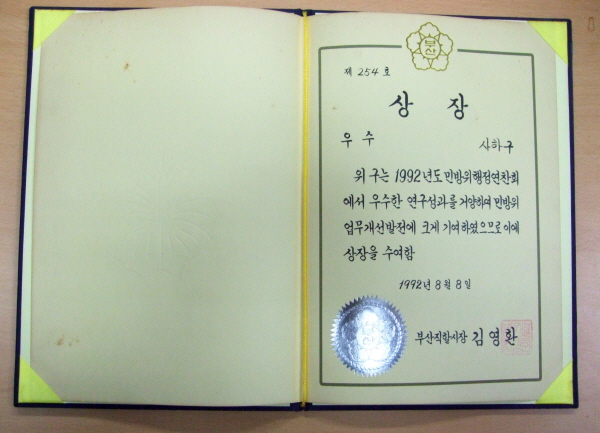 부산
제 254 호
상 장
우 수
사하구
위 구는 1992년도 민방위행정연찬회
에서 우수한 연구성과를 거양하여 민방위
업무개선발전에 크게 기여하였으므로 이에
상장을 수여함
1992년 8월 8일
부산직할시장 김영환